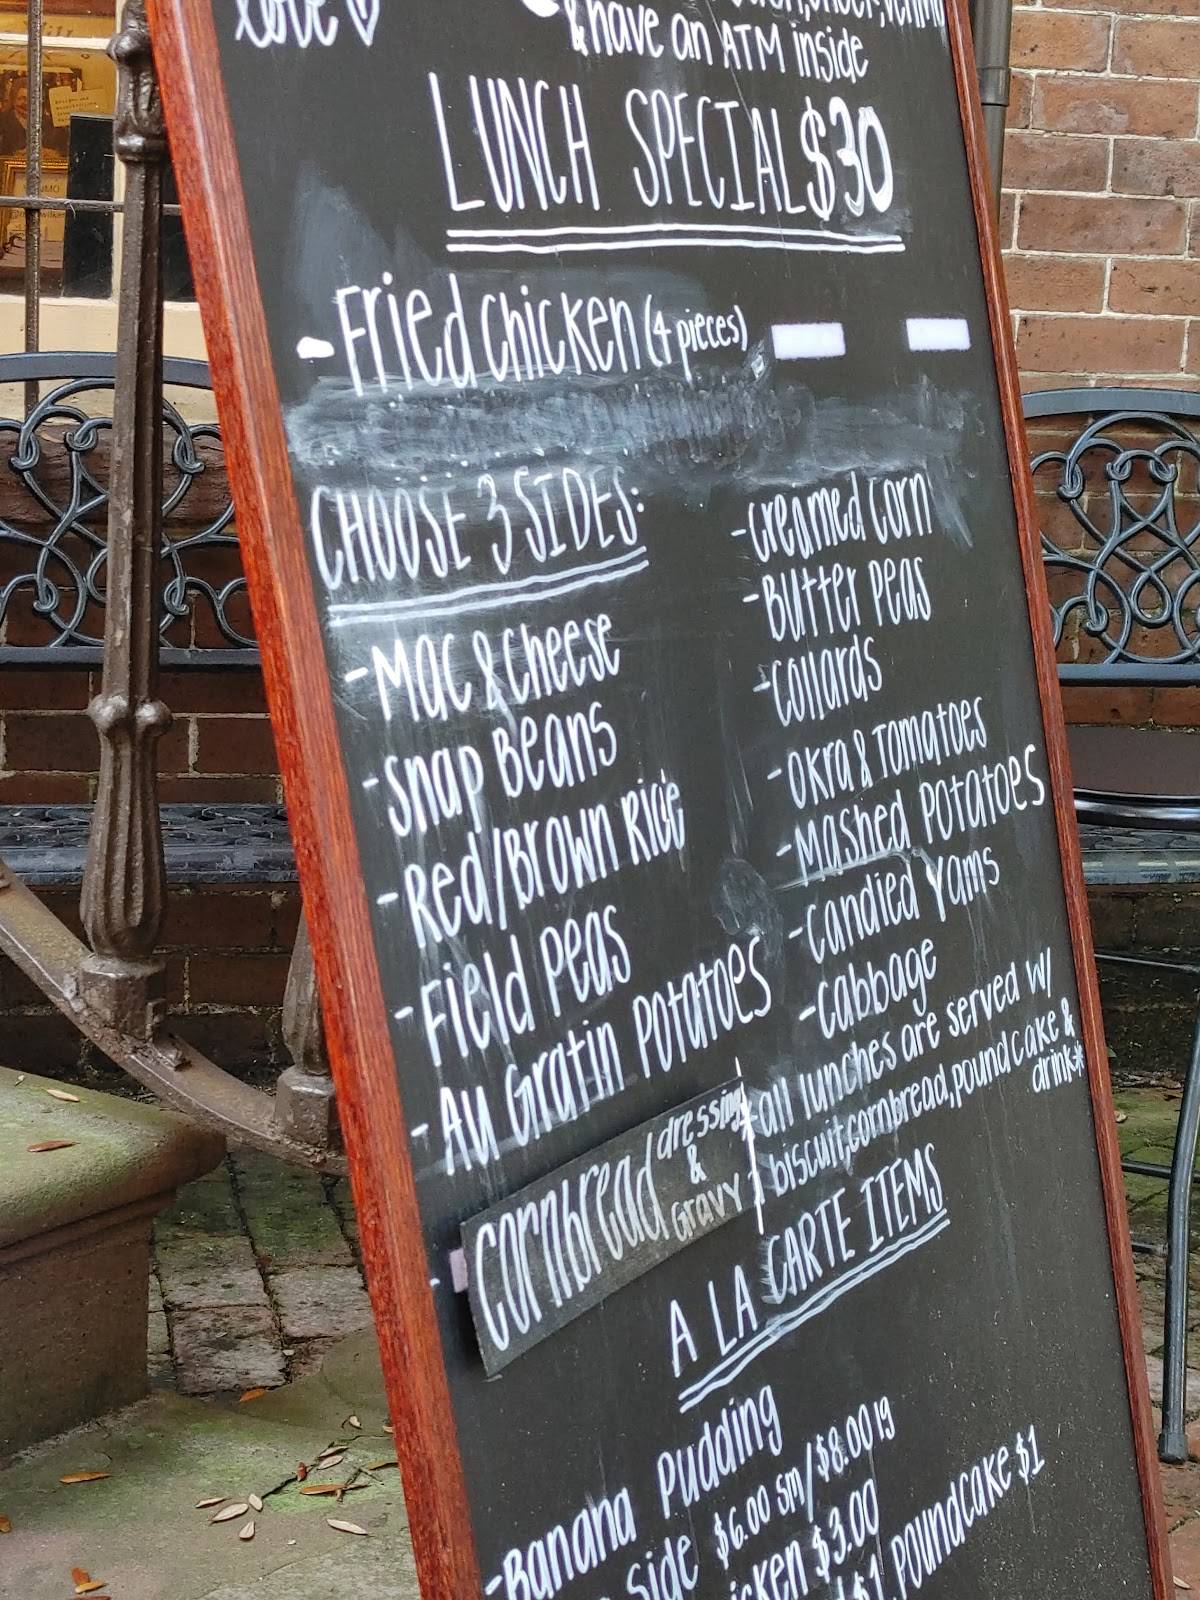 love
& have an ATM inside
LUNCH SPECIAL $30
- Fried chicken (4 pieces)
CHOOSE 3 SIDES:
- Mac & Cheese
- Snap Beans
- Red/Brown Rice
- Field Peas
- Au Gratin Potatoes
- Cornbread dressing & Gravy
- Creamed Corn
- Butter Peas
- Collards
- Okra & Tomatoes
- Mashed Potatoes
- Candied Yams
- Cabbage
*all lunches are served w/
biscuit, cornbread, pound cake &
drink*
A LA CARTE ITEMS
- Banana Pudding
Side $6.00 sm/$8.00 lg
$3.00
$1 poundcake $1